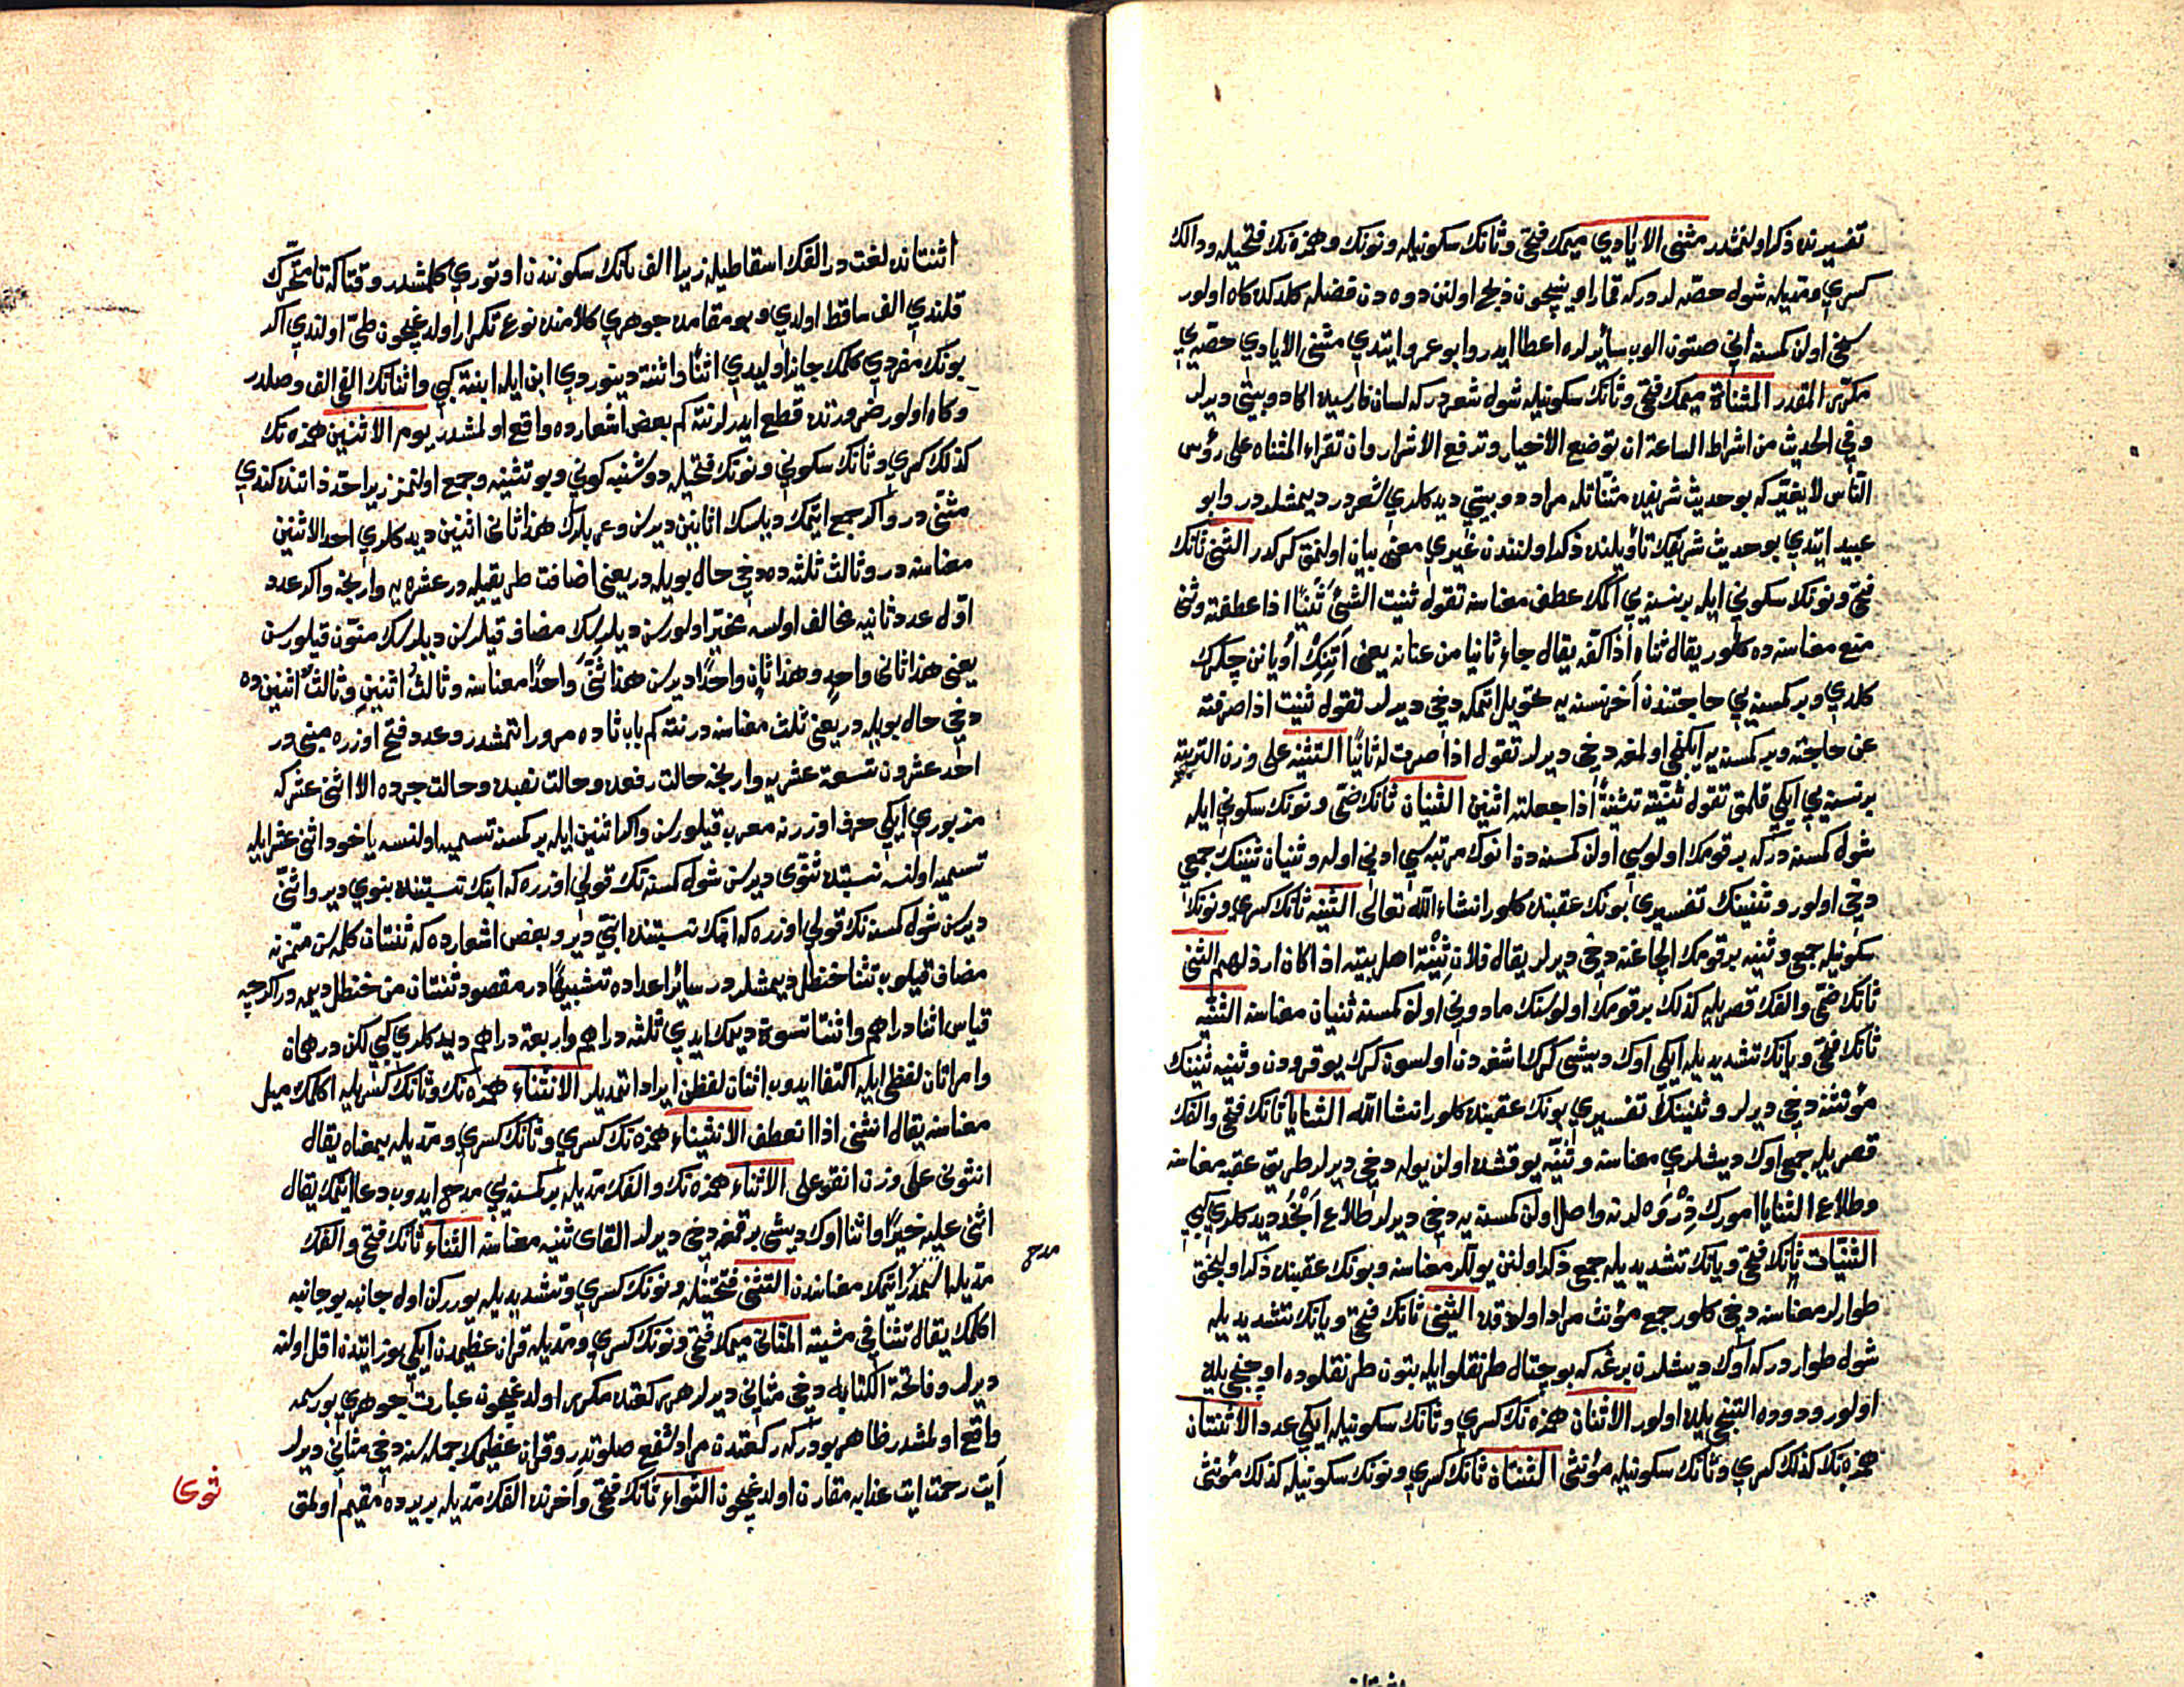 تفسيرنده ذكر اولنمشدر مثنى الايادي ميمك فتحى وثانك سكونيله ونونك وهمزه نك فتحيله ودالك
كسري ومديله شوله حصه لردركه قمار اوينيچون ذبح اولنن دوه دن فضله كلدكده كاه اولور
سخى اولن كمسنه انى صتون الوب سائرلره اعطا ايدر وابو عمرو ايتدي مثنى الايادي حصه يي
مكرر المقدر المثناة ميمك فتحى وثانك سكونيله شوله شعردركه لسان فارسيده اكا دو بيتى ديرلر
وفي الحديث من اشراط الساعة ان توضع الاخيار وترفع الاشرار وان تقراء المثناه على رؤس
الناس لا يغير كه بو حديث شريفده مثناتله مراد دو بيتي ديدكلري شعردر ديمشلردر وابو
عبيد ايتدي بو حديث شريفك تأويلنده ذكر اولنندن غيري معنى بيان اولنمق كركدر الثنى ثانك
فتحى ونونك سكوني ايله برنسنه يي اكمك عطف معناسنه تقول ثنيت الشئ ثنيا اذا عطفته وثنى
منع معناسنه ده كلور يقال ثناه اذا كفه يقال جاء ثانيا من عنانه يعنى اتنك اويانن چكرك
كلدي وبر كمسنه يي حاجتندن اخر نسنه يه تحويل اتمكه دخي ديرلر تقول ثنيت اذا صرفته
عن حاجته وبر كمسنه يه ايكنجى اولمغه دخى ديرلر تقول اذا صرت له ثانيا التثنيه على وزن التربيه
برنسنه يي ايكى قلمق تقول ثنيته تثنية اذا جعلته اثنين الثنيان ثانك ضمى ونونك سكوني ايله
شول كمسنه دركه بر قومك اولوسي اولن كمسنه دن انوك مرتبه سي ادنى اوله وثنيان ثنينك جمعي
دخى اولور وثنينك تفسيري بونك عقبنده كلور انشاء الله تعالى الثنيه ثانك كسري ونونك
سكونيله جمعى وثنيه بر قومك الچاغنه دخى ديرلر يقال فلان ثنية اهل بيته اذا كان ارذلهم الثنى
ثانك ضمى والفك قصريله كذلك بر قومك اولوسنك مادونى اولن كمسنه ثنيان معناسنه الثنيه
ثانك فتحى ويانك تشديديله ايكى اوك ديشى كرك اشغه دن اولسون كرك يوقرودن وثنيه ثنينك
مؤنثنه دخي ديرلر وثنينك تفسيري بونك عقبنده كلور انشا الله الثنايا ثانك فتحى والفك
قصريله جمع اوك ديشلري معناسنه وثنيه يوقشده اولن يوله دخى ديرلر طريق عقبه معناسنه
وطلاع الثنايا امورك ذروه لرنه واصل اولن كمسنه يه دخي ديرلر طلاع انجد ديدكلري كبي
الثنيات ثانك فتحى ويانك تشديديله جمع ذكر اولنن يوللر معناسنه وبونك عقبنده ذكر اولنجق
طوارلر معناسنه دخى كلور جمع مؤنث مراد اولندقده الثنى ثانك فتحى ويانك تشديديله
شول طوار دركه اوك ديشلرن برغه كه بو چتال طرنقلو ايله بتون طرنقلوده اوچنجي يلده
اولور ودوه ده التنجى يلده اولور الاثنان همزه نك كسري وثانك سكونيله ايكى عدد الاثنتان
همزه نك كذلك كسري وثانك سكونيله مؤنثى الثنتان ثانك كسري ونونك سكونيله كذلك مؤنثى
اثنتانده لغت در الفك اسقاطيله زيرا الف ثانك سكونندن اوتوري كلمشدر وقتا كه ثا متحرك
قلندي الف ساقط اولدي وبو مقامده جوهري كلامنده نوع تكرار اولدغيچون طى اولندي اكر
بونك مفردي كلمك جايز اوليدي اثنا واثنة دينوردي ابن ايله ابنة كبي واثنانك الفى الف وصلدر
وكاه اولور ضرورتده قطع ايدرلر نته كم بعض اشعارده واقع اولمشدر يوم الاثنين همزه نك
كذلك كسري وثانك سكونى ونونك فتحيله دوشنبه كونى وبو تثنيه وجمع اولنمز زيرا حد ذاتنده كندي
مثنى در واكر جمع ايتمك ديلسك اثانين ديرسن وعربلرك هذا ثانى اثنين ديدكلري احد الاثنين
معناسنه در وثالث ثلثه ده دخي حال بويله در يعنى اضافت طريقيله در عشره يه وارنجه واكر عدد
اول عدد ثانيه مخالف اولسه مخير اولورسن ديلرسك مضاف قيلرسن ديلرسك منون قيلورسن
يعنى هذا ثانى واحد وهذا ثان واحدا ديرسن هذا ثنى واحدا معناسنه وثالث اثنين وثالث اثنين ده
دخى حال بويله در يعنى ثلث معناسنه در نته كم باب ثاده مرور اتمشدر وعدد فتح اوزره مبنى در
احد عشردن تسعة عشره وارنجه حالت رفعده وحالت نصبده وحالت جرده الا اثنى عشر كه
مزبوري ايكى حرف اوزرنه معرب قيلورسن واكر اثنين ايله بر كمسنه تسميه اولنسه ياخود اثنى عشر ايله
تسميه اولنسه نسبتده ثنوى ديرسن شول كمسنه نك قولى اوزره كه ابنك نسبتنده بنوي دير واثنى
ديرسن شول كمسنه نك قولي اوزره كه ابنك نسبتنده ابنى دير وبعض اشعارده كه ثنتان كلمه سن متمزنه
مضاف قيلوب ثنتا حنظل ديمشلردر سائر اعداده تشبيها در مقصود ثنتان من حنظل ديمه در اكرچه
قياس اثنا دراهم واثنتا نسوة ديمك ايدي ثلثه دراهم واربعة دراهم ديدكلري كبى لكن درهمان
وامراتان لفظى ايله اكتفا ايدوب اثنان لفظن ايراد اتمديلر الانثناء همزه نك وثانك كسريله اكلمك ميل
معناسنه يقال انثنى اذا انعطف الانثيناء همزه نك كسري وثانك كسري ومديله بمعناه يقال
انثونى على وزن انقوعلى الاثناء همزه نك والفك مديله بر كمسنه يي مدح ايدوب دعا ايتمك يقال
اثنى عليه خيرا واثنا اوك ديشى برقمغه دخى ديرلر القاى ثنيه معناسنه الثناء ثانك فتحى والفك
مدح
مديله ايتمك معناسنه التثنى فتحتيله ونونك كسري وتشديديله يوررکن اول جانبه بو جانبه
اكلمك يقال تثنا في مشيته المثانى ميمك فتحى ونونك كسري ومديله قران عظيمدن ايكى يوز ايتدن اقل اولنه
ديرلر وفاتحة الكتابه دخى مثانى ديرلر هر ركعتده مكرر اولدغيچون عبارت جوهري بو رسمه
واقع اولمشدر ظاهر بودركه ركعتدن مراد شفع صلوتدر وقران عظيمك جمله سنه دخى مثانى ديرلر
آيت رحمت ايت عذابه مقارن اولدغيچون الثواء ثانك فتحى واخرنده الفك مديله بر يرده مقيم اولمق
ثوى